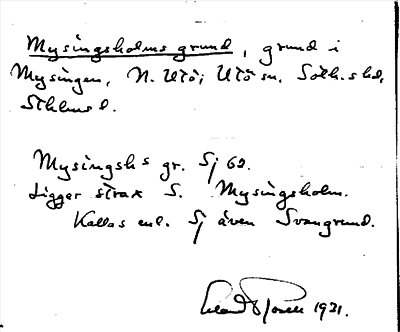 Mysingsholms grund, grund i
Mysingen, N. Utö, Utö sn, Söth. skd,
Sthlms l.
Mysingsh:s gr. Sj 62.
Ligger strax S. Mysingsholm.
Kallas enl. Sj även Svangrund.
1921.